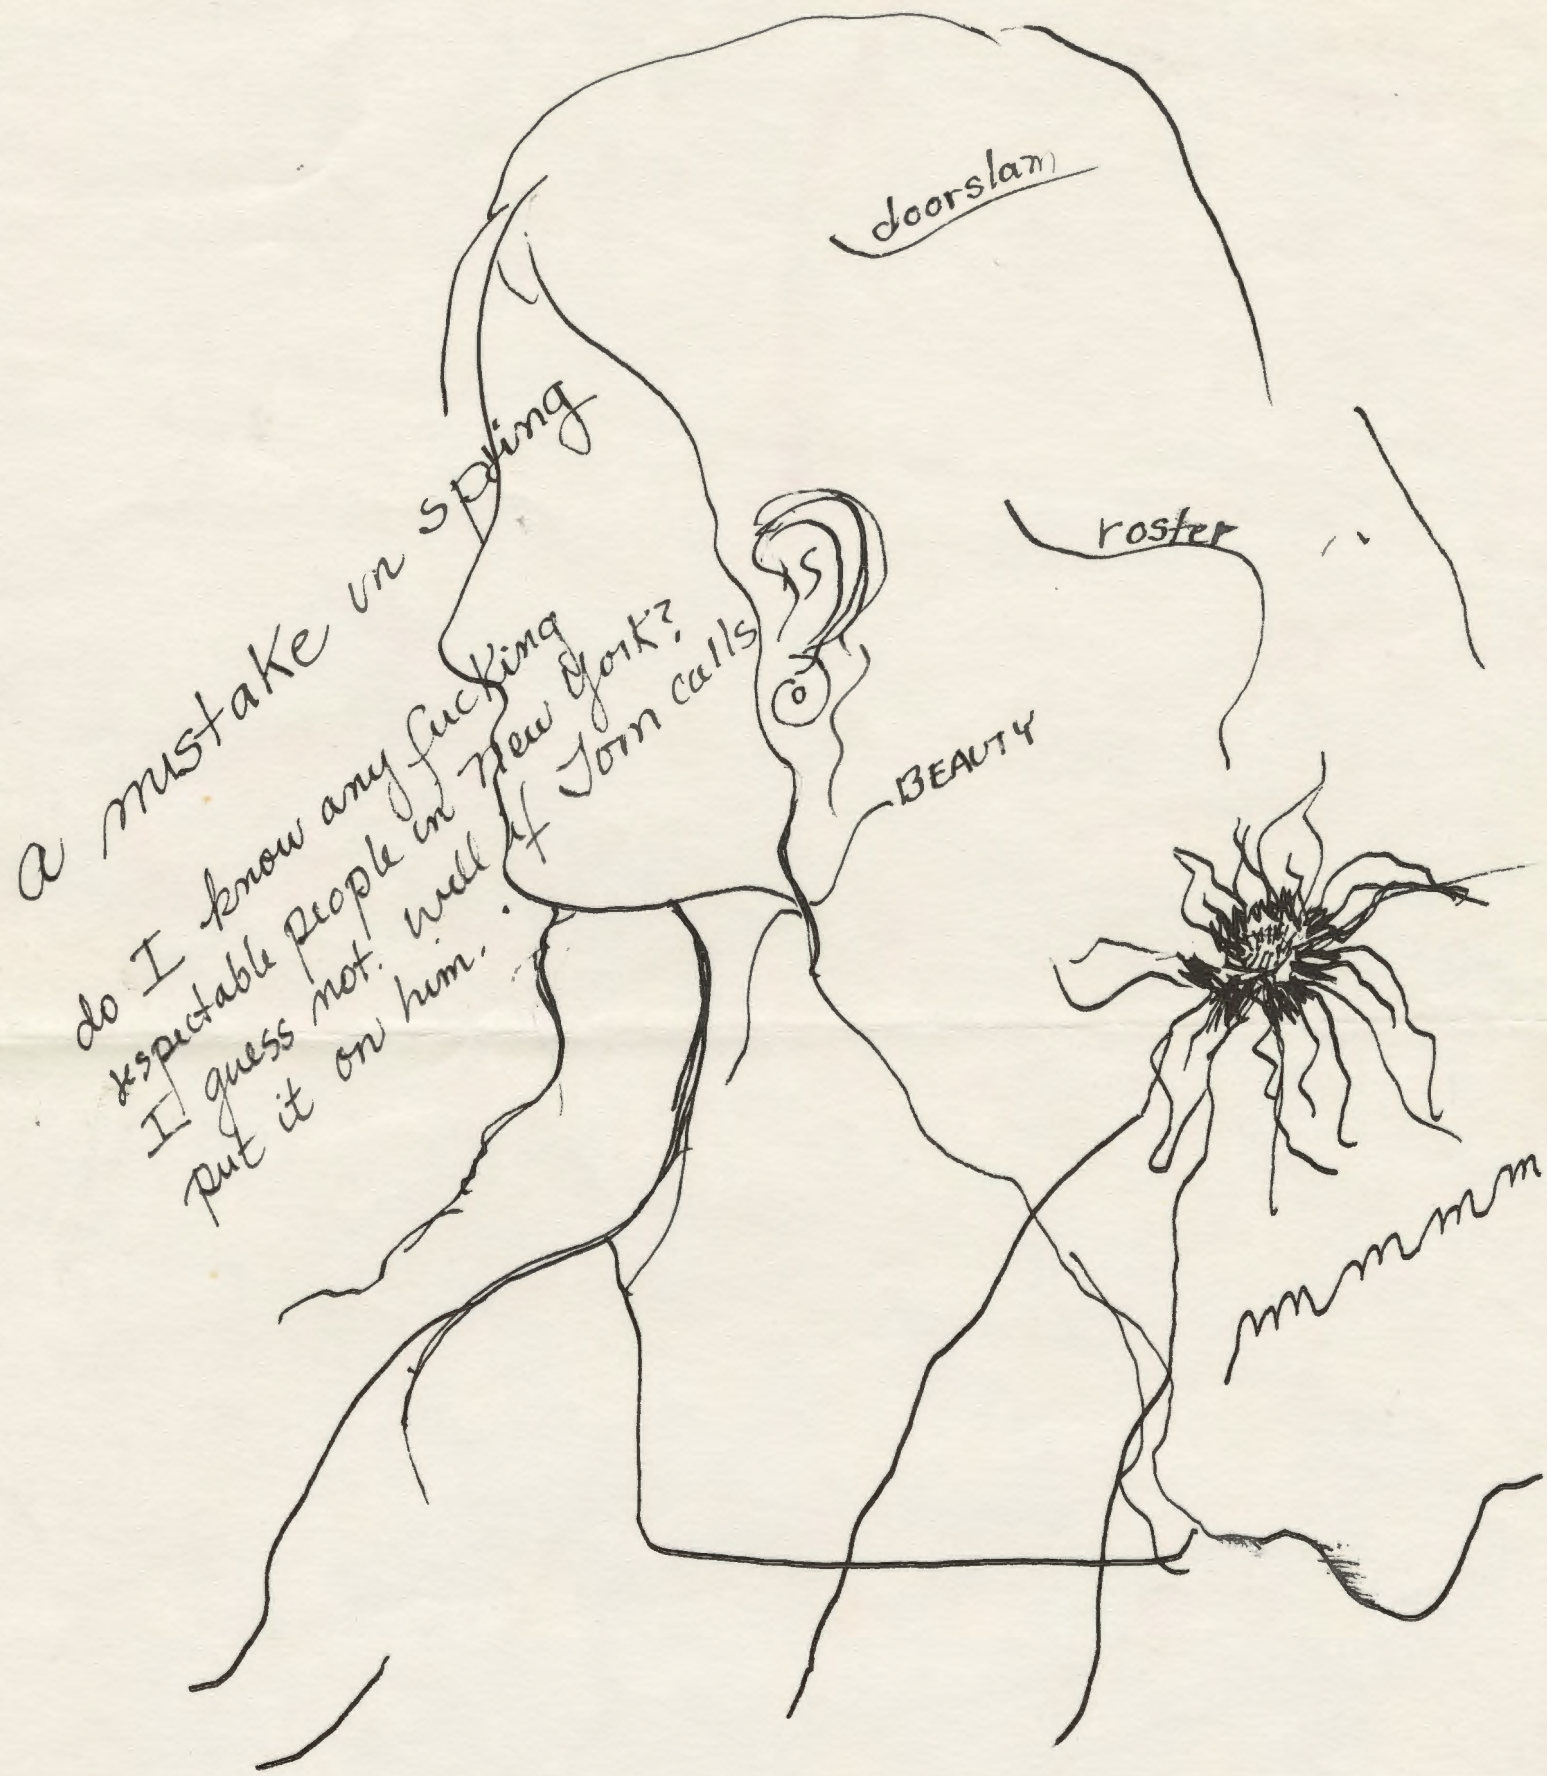 doorslam
a mistake in spring
roster
do I know any fucking
respectable people in New York?
I guess not. well if Tom calls
put it on him.
BEAUTY
mmmmm